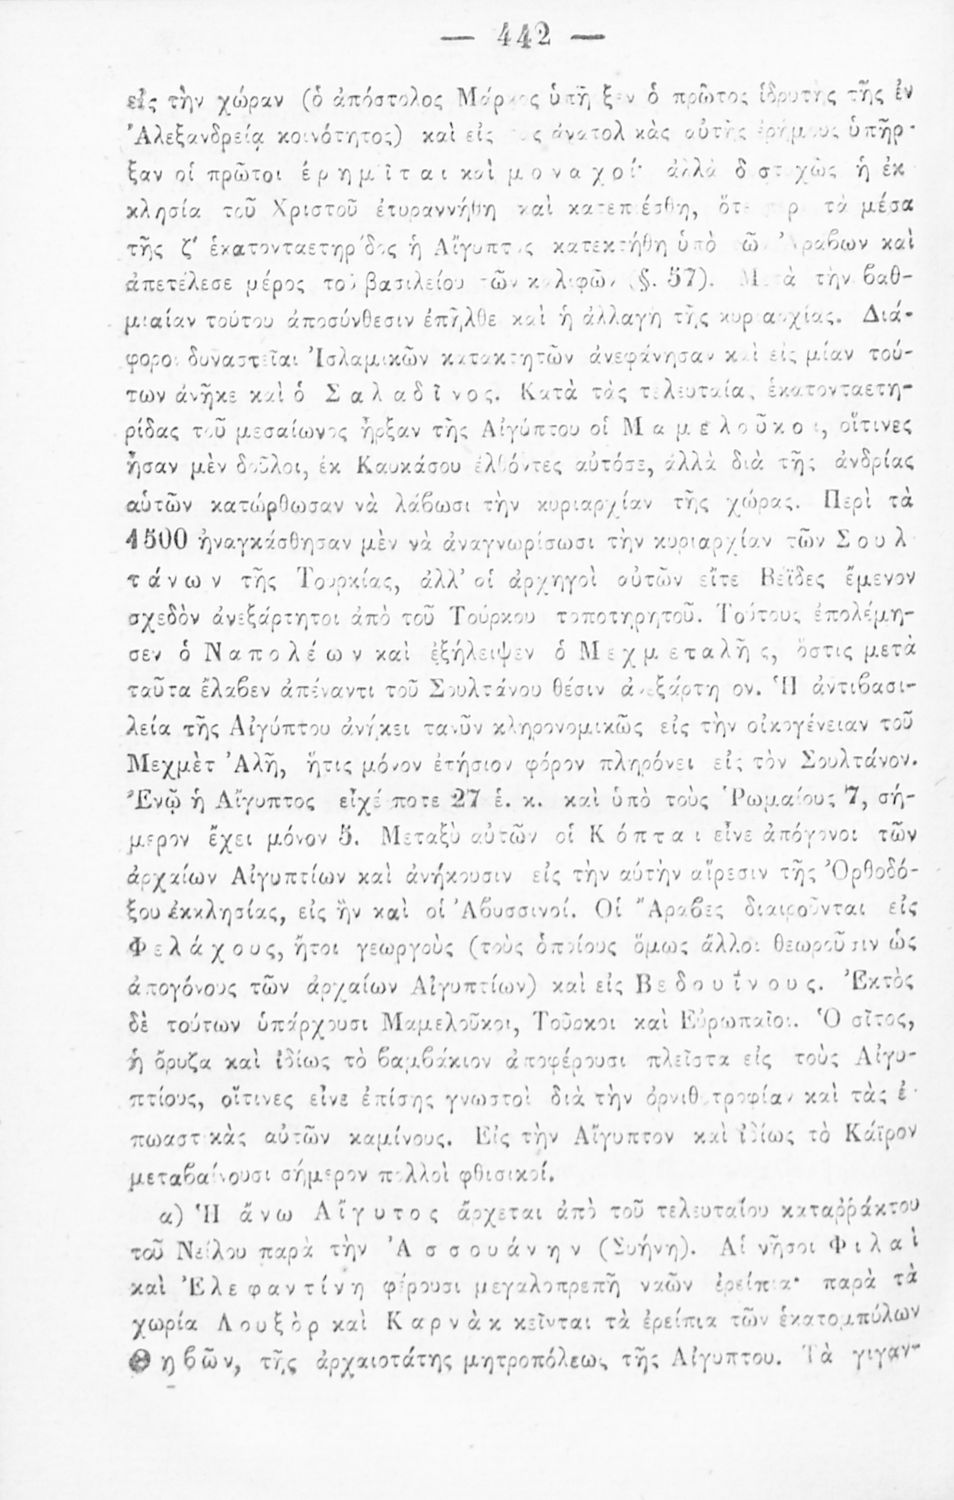 — 442 —
εἰς τὴν χώραν (ὁ ἀπόστολος Μάρκος ὑπῆρξεν ὁ πρῶτος ἱδρυτὴς τῆς ἐν
Ἀλεξανδρείᾳ κοινότητος) καὶ εἰς τὰς ἀνατολικὰς αὐτῆς ἐρήμους ὑπῆρ-
ξαν οἱ πρῶτοι ἐρημῖται καὶ μοναχοί· ἀλλὰ δυστυχῶς ἡ ἐκ
κλησία τοῦ Χριστοῦ ἐτυραννήθη καὶ κατεπιέσθη, ὅτε περὶ τὰ μέσα
τῆς ζ′ ἑκατονταετηρίδος ἡ Αἴγυπτος κατεκτήθη ὑπὸ τῶν Ἀράβων καὶ
ἀπετέλεσε μέρος τοῦ βασιλείου τῶν καλιφῶν (§. 57). Μετὰ τὴν βαθ-
μιαίαν τούτου ἀποσύνθεσιν ἐπῆλθε καὶ ἡ ἀλλαγὴ τῆς κυριαρχίας. Διά-
φοροι δυναστεῖαι Ἰσλαμικῶν κατακτητῶν ἀνεφάνησαν καὶ εἰς μίαν τού-
των ἀνῆκε καὶ ὁ Σαλαδῖνος. Κατὰ τὰς τελευταίας ἑκατονταετη-
ρίδας τοῦ μεσαίωνος ἦρξαν τῆς Αἰγύπτου οἱ Μαμελοῦκοι, οἵτινες
ἦσαν μὲν δοῦλοι, ἐκ Καυκάσου ἐλθόντες αὐτόσε, ἀλλὰ διὰ τῆς ἀνδρίας
αὑτῶν κατώρθωσαν νὰ λάβωσι τὴν κυριαρχίαν τῆς χώρας. Περὶ τὰ
1500 ἠναγκάσθησαν μὲν νὰ ἀναγνωρίσωσι τὴν κυριαρχίαν τῶν Σουλ
τάνων τῆς Τουρκίας, ἀλλ' οἱ ἀρχηγοὶ αὐτῶν εἴτε Βέϊδες ἔμενον
σχεδὸν ἀνεξάρτητοι ἀπὸ τοῦ Τούρκου τοποτηρητοῦ. Τούτους ἐπολέμη-
σεν ὁ Ναπολέων καὶ ἐξήλειψεν ὁ Μεχμεταλῆς, ὅστις μετὰ
ταῦτα ἔλαβεν ἀπέναντι τοῦ Σουλτάνου θέσιν ἀνεξάρτητον. Ἡ ἀντιβασι-
λεία τῆς Αἰγύπτου ἀνήκει τανῦν κληρονομικῶς εἰς τὴν οἰκογένειαν τοῦ
Μεχμὲτ Ἀλῆ, ἥτις μόνον ἐτήσιον φόρον πληρόνει εἰς τὸν Σουλτάνον.
Ἐνῷ ἡ Αἴγυπτος εἶχέ ποτε 27 ἑ. κ. καὶ ὑπὸ τοὺς Ῥωμαίους 7, σή-
μερον ἔχει μόνον 5. Μεταξὺ αὐτῶν οἱ Κόπται εἶνε ἀπόγονοι τῶν
ἀρχαίων Αἰγυπτίων καὶ ἀνήκουσιν εἰς τὴν αὐτὴν αἵρεσιν τῆς Ὀρθοδό-
ξου ἐκκλησίας, εἰς ἣν καὶ οἱ Ἀβυσσινοί. Οἱ Ἄραβες διαιροῦνται εἰς
Φελάχους, ἤτοι γεωργοὺς (τοὺς ὁποίους ὅμως ἄλλοι θεωροῦσιν ὡς
ἀπογόνους τῶν ἀρχαίων Αἰγυπτίων) καὶ εἰς Βεδουΐνους. Ἐκτὸς
δὲ τούτων ὑπάρχουσι Μαμελοῦκοι, Τοῦρκοι καὶ Εὐρωπαῖοι. Ὁ σῖτος,
ἡ ὄρυζα καὶ ἰδίως τὸ βαμβάκιον ἀποφέρουσι πλεῖστα εἰς τοὺς Αἰγυ-
πτίους, οἵτινες εἶνε ἐπίσης γνωστοὶ διὰ τὴν ὀρνιθοτροφίαν καὶ τὰς ἐ-
πωαστικὰς αὐτῶν καμίνους. Εἰς τὴν Αἴγυπτον καὶ ἰδίως τὸ Κάϊρον
μεταβαίνουσι σήμερον πολλοὶ φθισικοί.
α) Ἡ ἄνω Αἴγυτος ἄρχεται ἀπὸ τοῦ τελευταίου καταῤῥάκτου
τοῦ Νείλου παρὰ τὴν Ἀσσουάνην (Συήνη). Αἱ νῆσοι Φιλαὶ
καὶ Ἐλεφαντίνη φέρουσι μεγαλοπρεπῆ ναῶν ἐρείπια· παρὰ τὰ
χωρία Λουξὸρ καὶ Καρνὰκ κεῖνται τὰ ἐρείπια τῶν ἑκατομπύλων
Θηβῶν, τῆς ἀρχαιοτάτης μητροπόλεως τῆς Αἰγυπτου. Τὰ γιγαν-